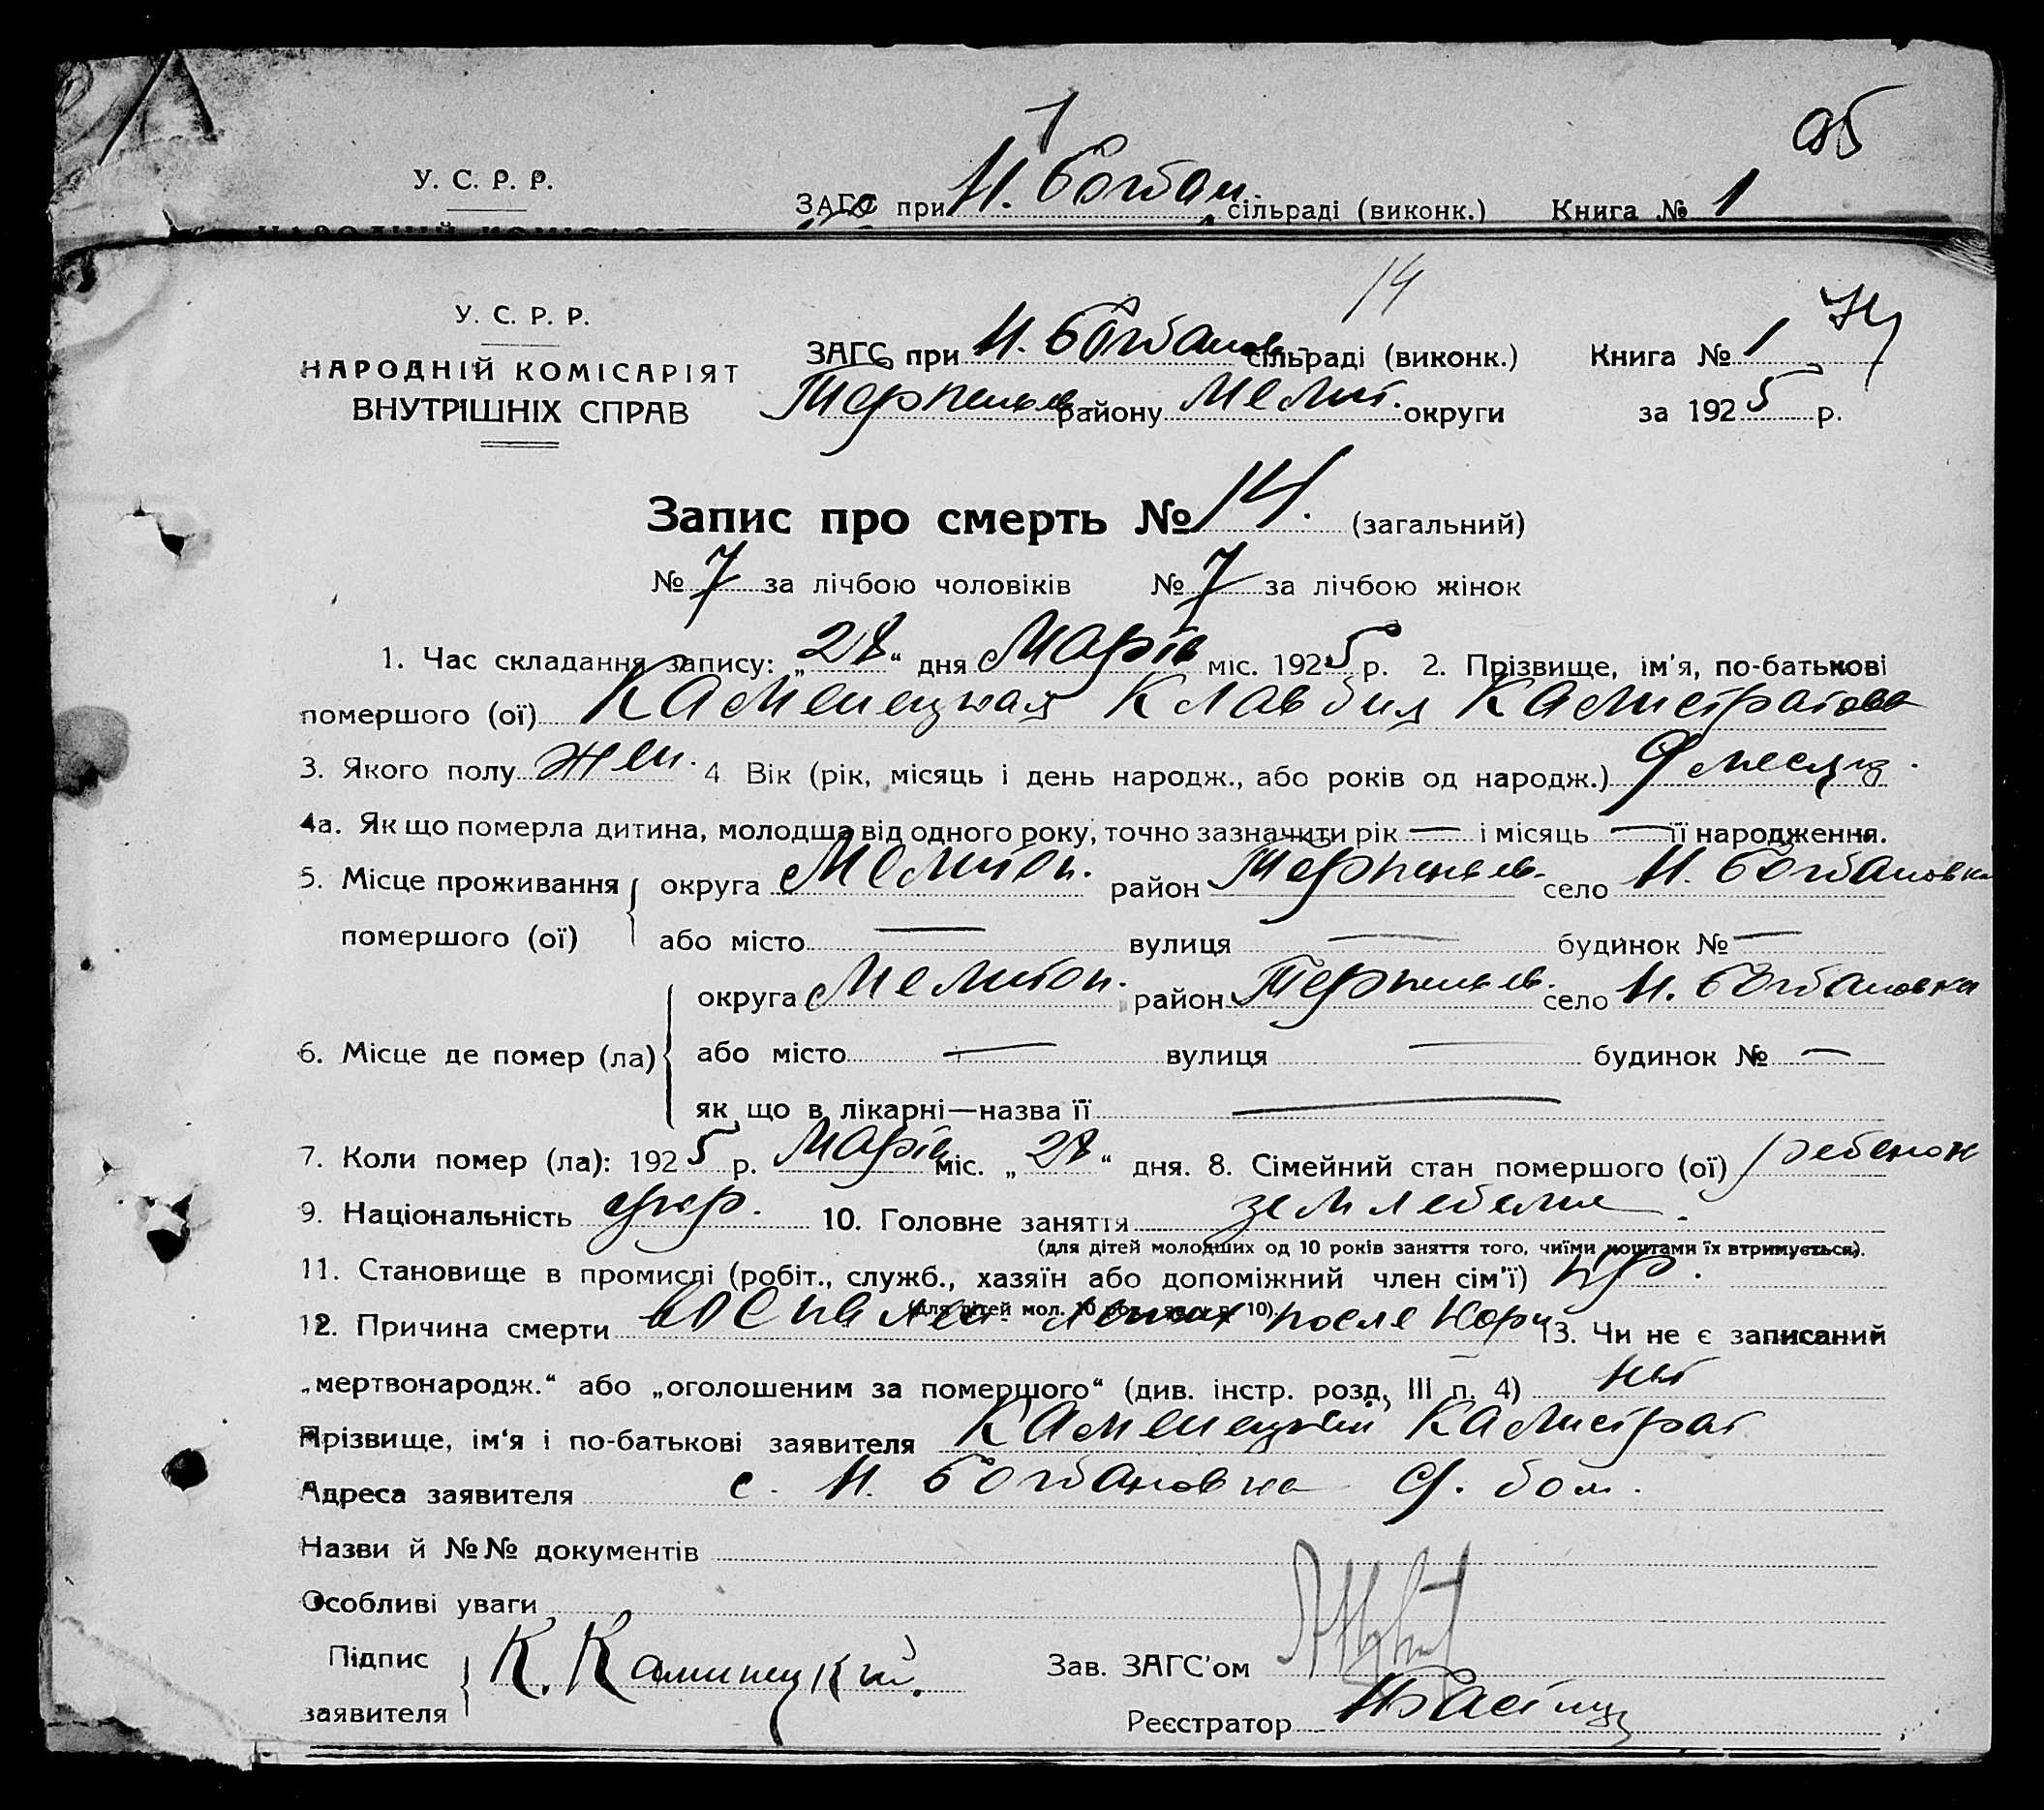 1
об
У. С. Р. Р.
ЗАГС при Н. Богдан. сільраді (виконк.) Книга № 1
14
У. С. Р. Р.
НАРОДНІЙ КОМІСАРІЯТ
ВНУТРІШНІХ СПРАВ
ЗАГС при Н. Богданов. сільраді (виконк.) Книга № 1
Терпеньев. району Мелит. округи за 1925 р.
Запис про смерть № 14. (загальний)
№ 7 за лічбою чоловіків № 7 за лічбою жінок
1. Час складання запису: „28“ дня Марта міс. 1925 р. 2. Прізвище, ім'я, по-батькові
помершого (ої) Каменецкая Клавдия Калистратовн
3. Якого полу жен. 4 Вік (рік, місяць і день народж., або років од народж.) 9 месяц.
4а. Як що померла дитина, молодша від одного року, точно зазначити рік — і місяць — її народження.
5. Місце проживання округа Мелитоп. район Терпеньев. село Н. Богдановка
помершого (ої) або місто — вулиця — будинок № —
округа Мелитоп. район Терпеньев. село Н. Богдановка
6. Місце де помер (ла) або місто — вулиця — будинок № —
як що в лікарні—назва її —
7. Коли помер (ла): 1925 р. Марта міс. „28“ дня. 8. Сімейний стан помершого (ої) ребенок
9. Національність укр. 10. Головне заняття земледелие.
(для дітей молодших од 10 років заняття того, чиїми коштами їх втримується).
11. Становище в промислі (робіт., служб., хазяїн або допоміжний член сім'ї)
(для дітей мол. 10 рок. див. п. 10).
12. Причина смерти воспален. легких после кори 13. Чи не є записаний
„мертвонародж.“ або „оголошеним за померщого“ (див. інстр. розд. III п. 4) нет
Прізвище, ім'я і по-батькові заявителя Каменецкий Калистрат
Адреса заявителя с. Н. Богдановка с. дом.
Назви й №№ документів
Особливі уваги
Підпис
заявителя К. Каминецкий.
Зав. ЗАГС'ом
Реєстратор